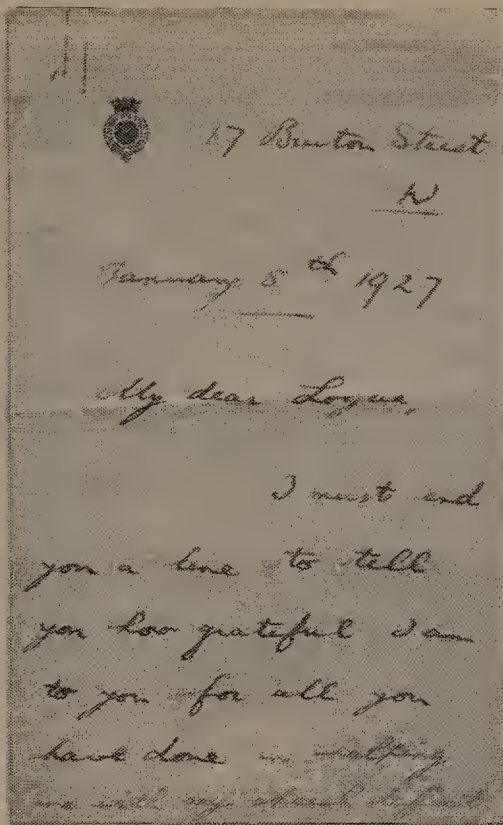 17 Bruton Street
W
January 5th 1927
My dear Logue,
I must send
you a line to tell
you how grateful I am
to you for all you
have done in helping
me with my speech defect